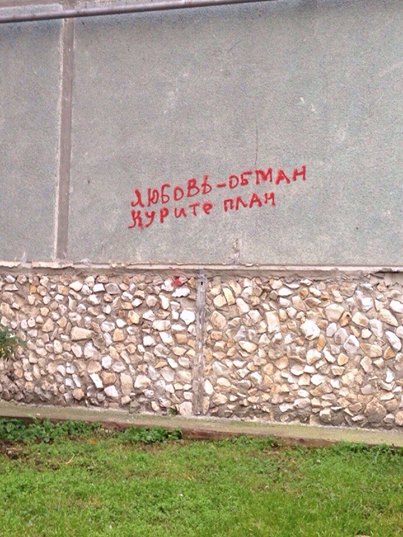 ЛЮБОВЬ-ОБМАН
КУРИТЕ ПЛАН